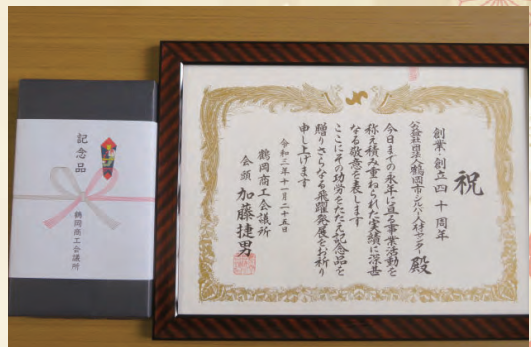 祝
創業・創立四十周年
公益社団法人鶴岡市シルバー人材センター 殿
今日までの永年に亘る事業活動を
称え積み重ねられた実績に深甚
なる敬意を表します
ここにその功労をたたえ記念品を
贈りさらなる飛躍発展をお祈り
申し上げます
令和三年十一月二十五日
鶴岡商工会議所
会頭 加藤捷男
記念品
鶴岡商工会議所